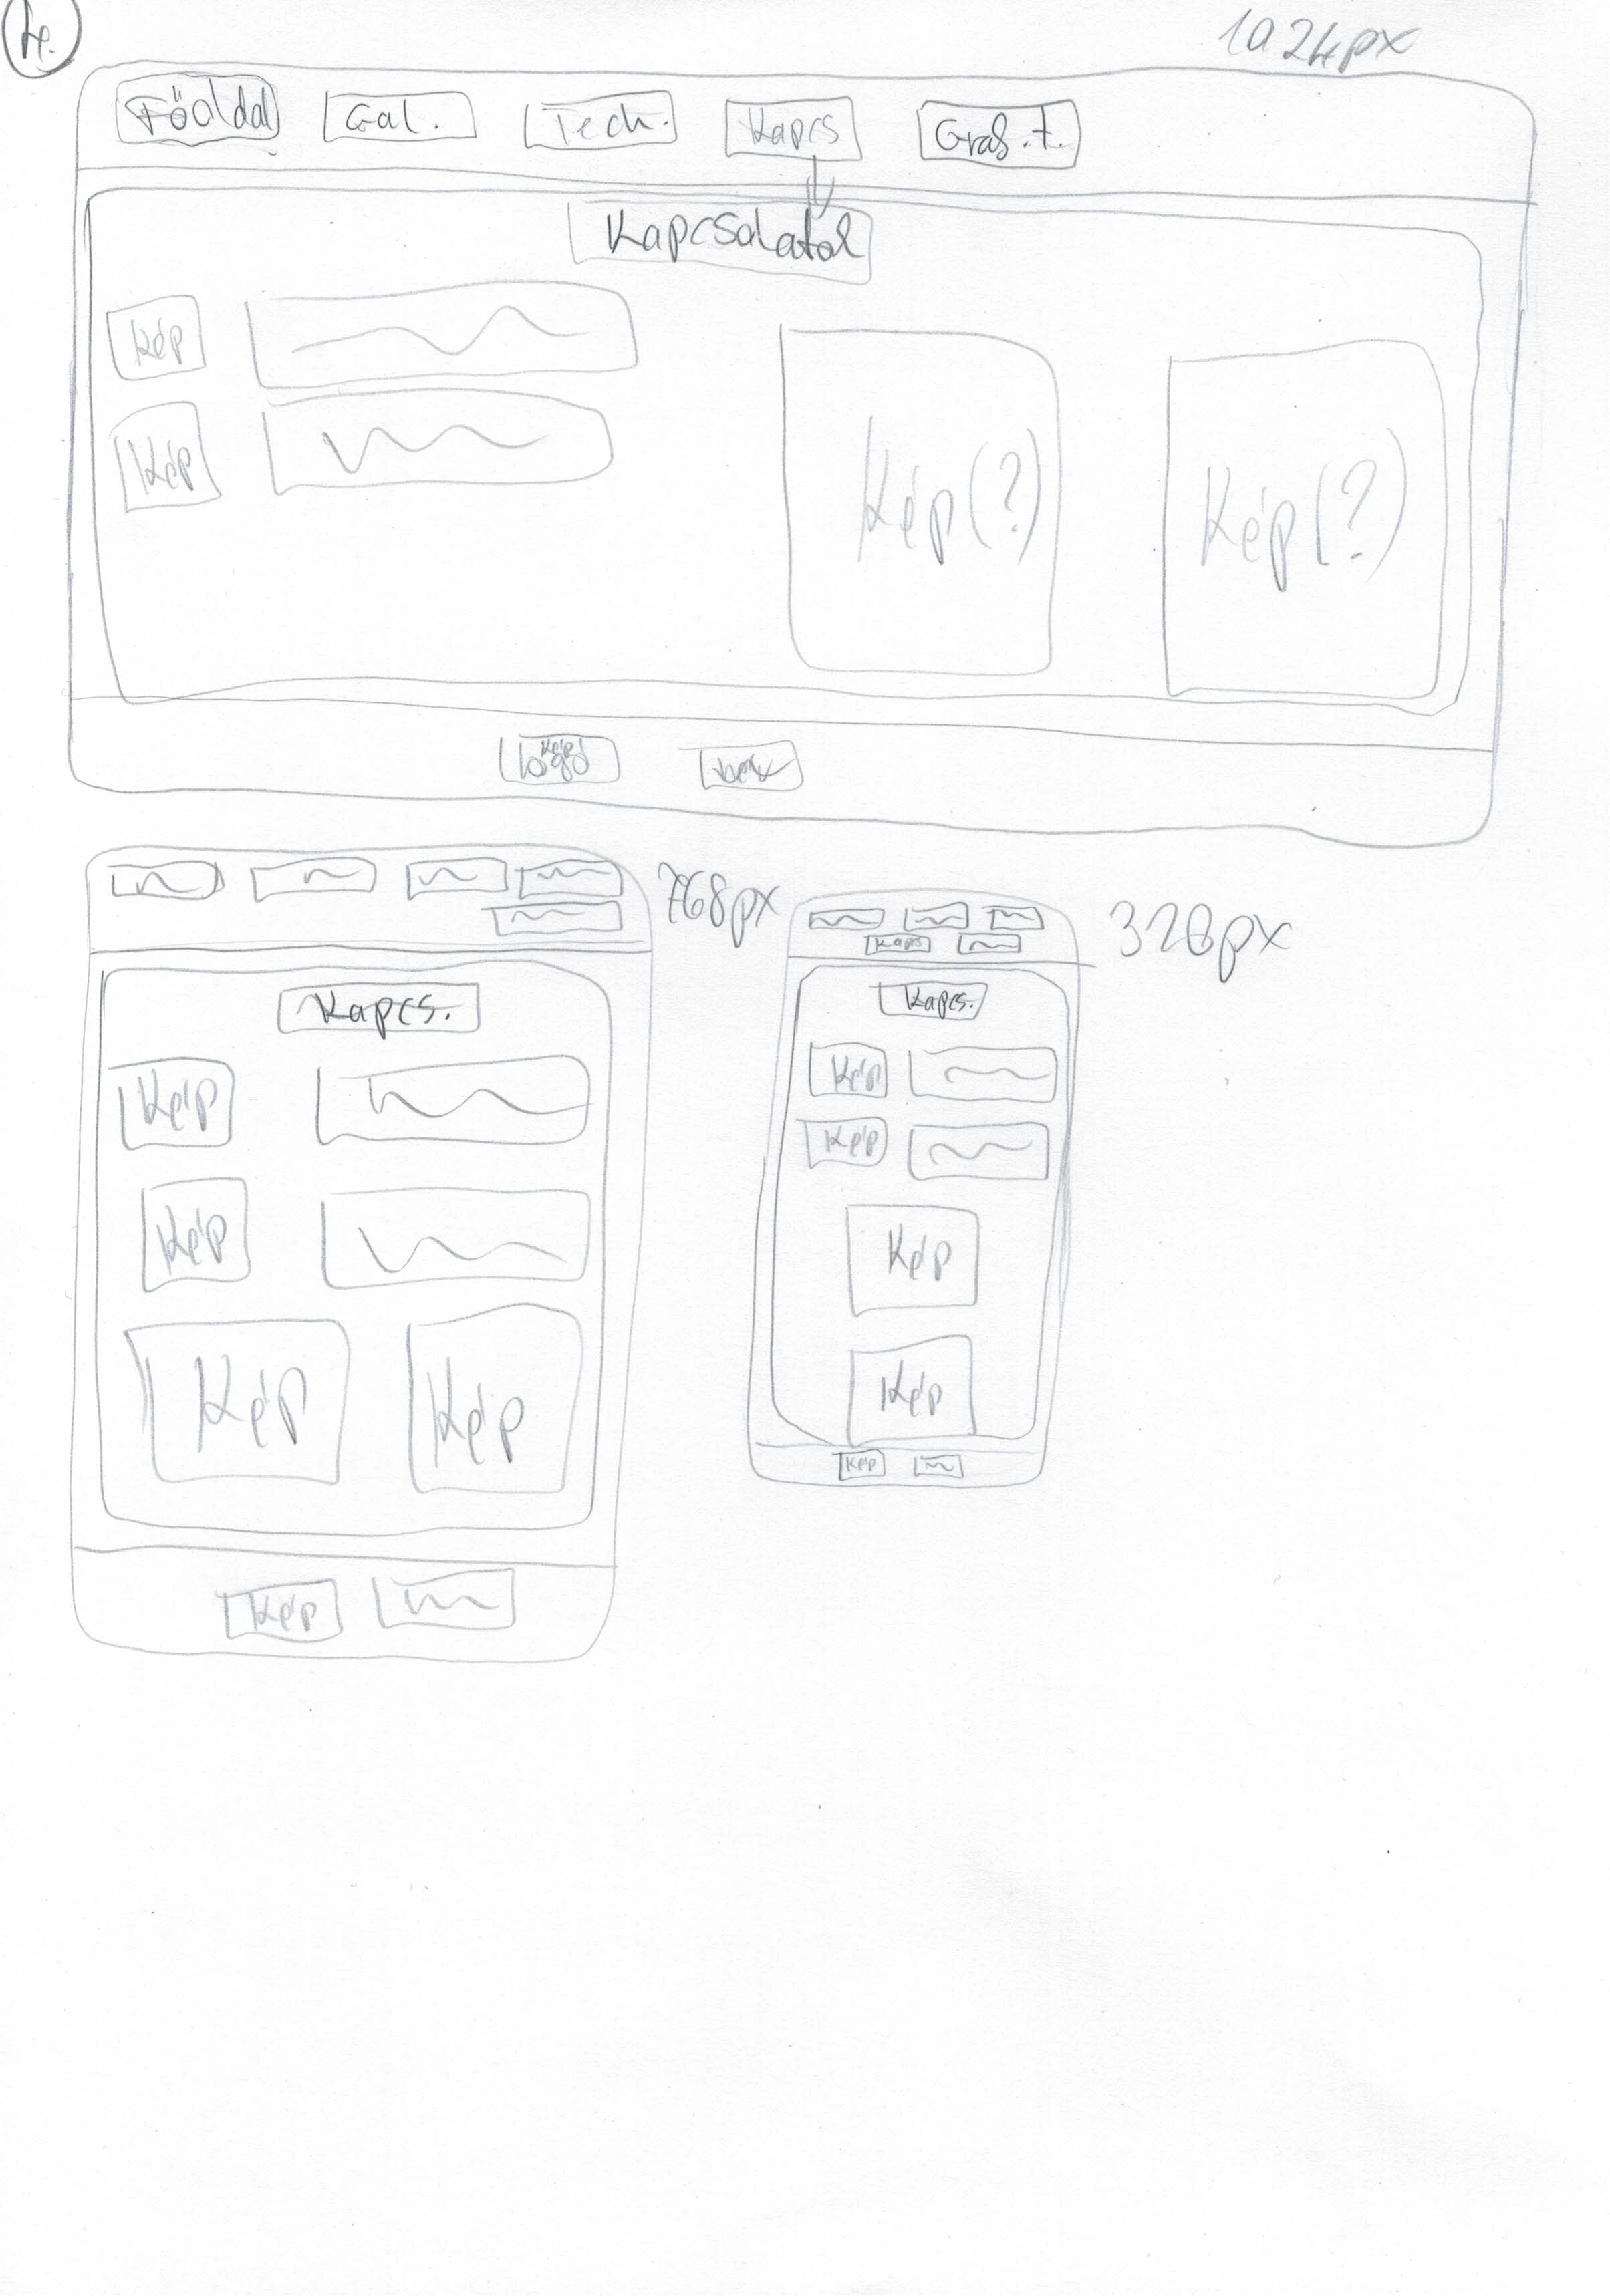 4.
1024px
Főoldal Gal. Tech. Kapcs Graf.t.
Kapcsolatok
Kép
Kép
Kép(?) Kép(?)
logó
768px
Kapcs.
Kép
Kép
Kép Kép
Kép
320px
Kapcs
Kapcs.
Kép
Kép
Kép
Kép
Kép